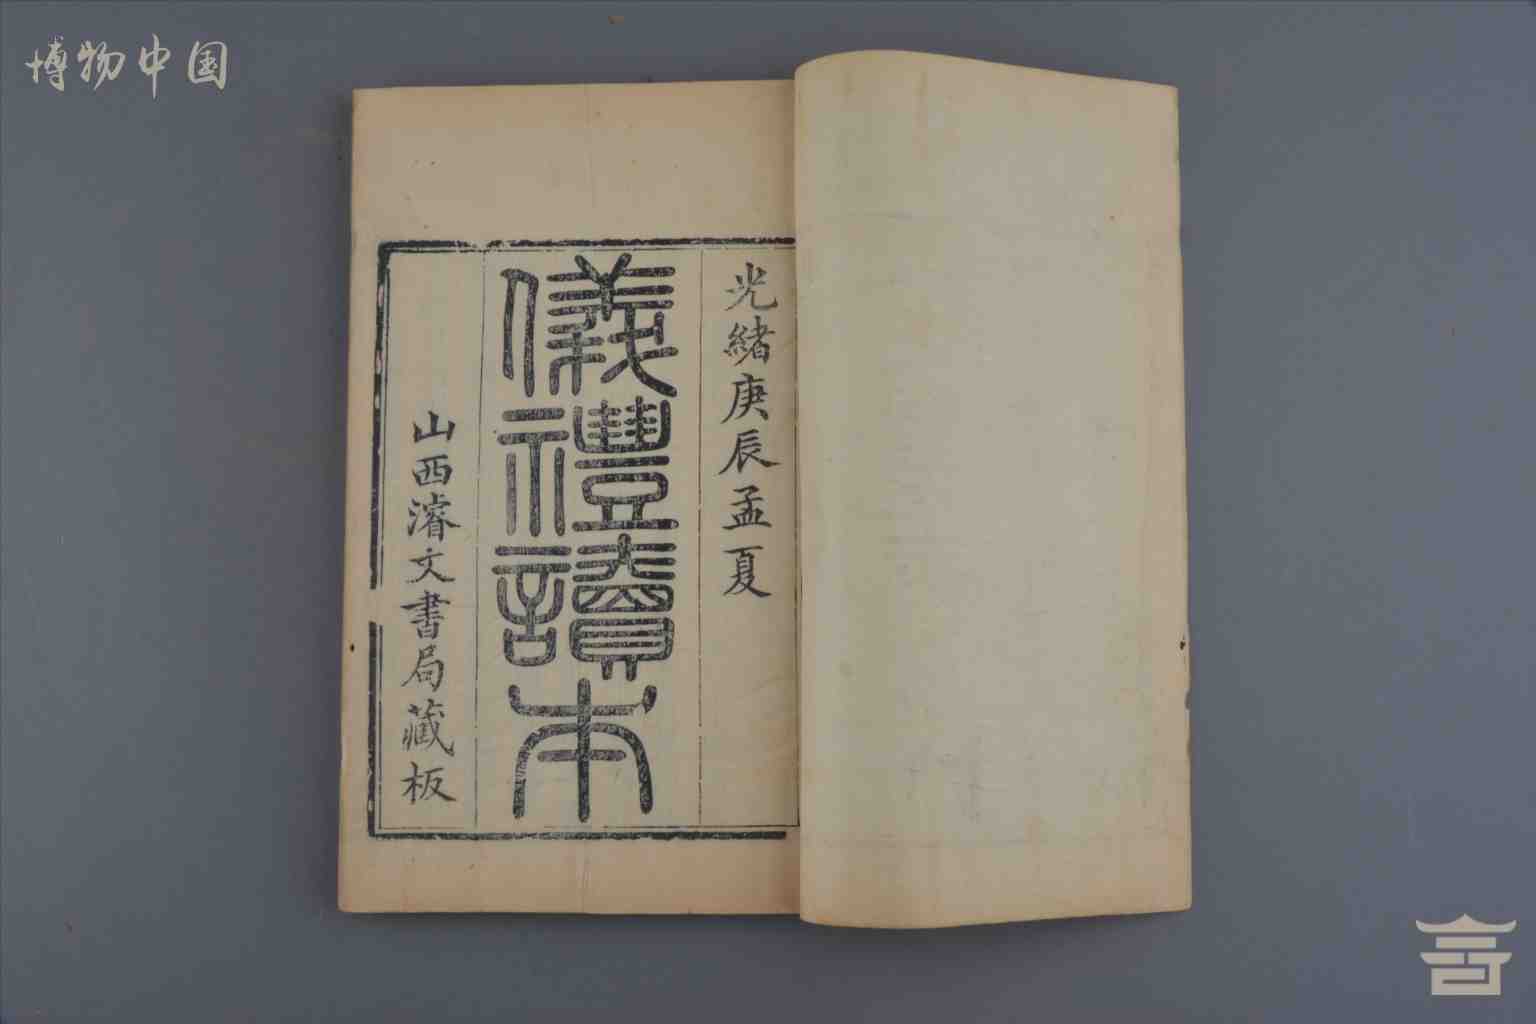 博物中国
光緒庚辰孟夏
儀禮讀本
山西濬文書局藏板